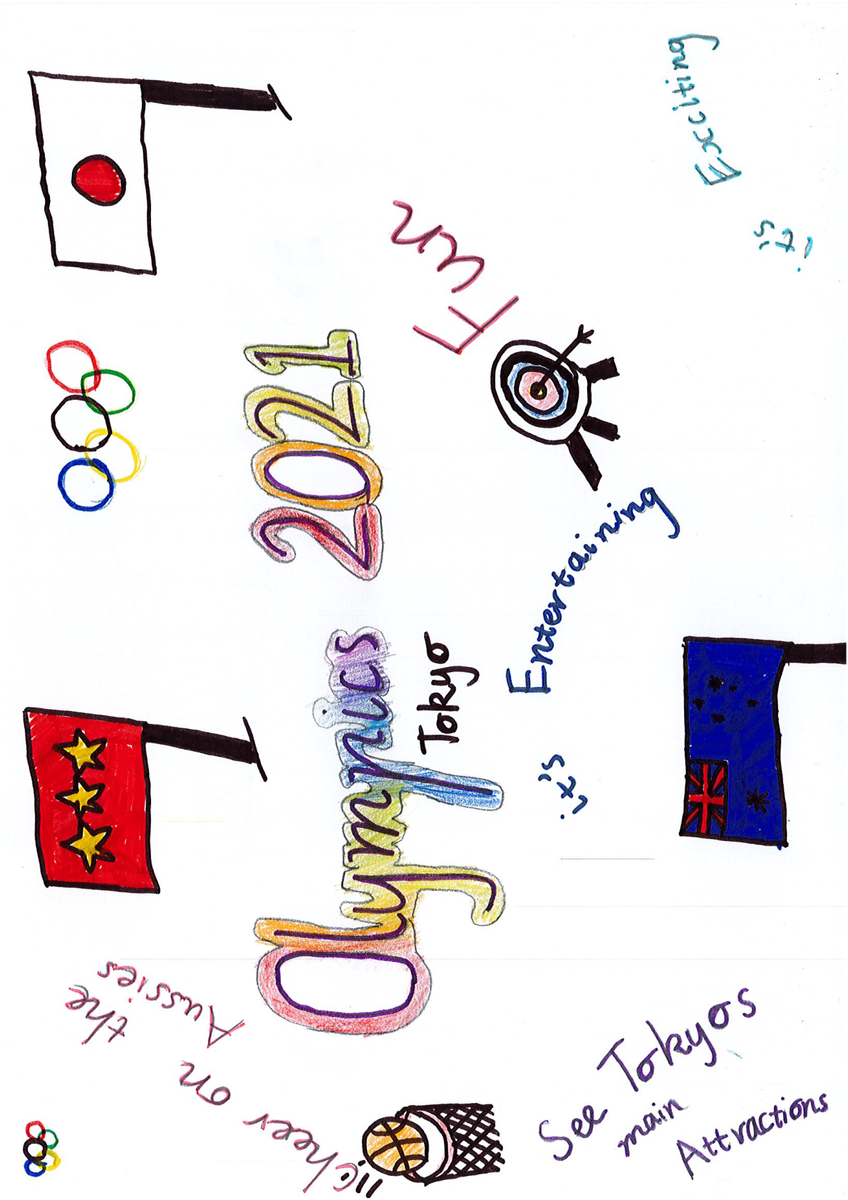 Cheer on the
Aussies
Olympics 2021
Tokyo
Fun
it's Entertaining
it's Exciting
See Tokyos
main
Attractions